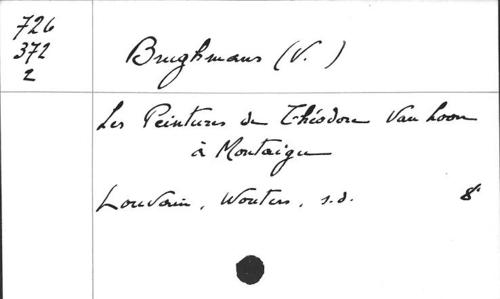 726
372
2
Brughmans (V.)
Les Peintures de Théodore Van Loon
à Montaigu
Louvain, Wouters, s.d. 8°